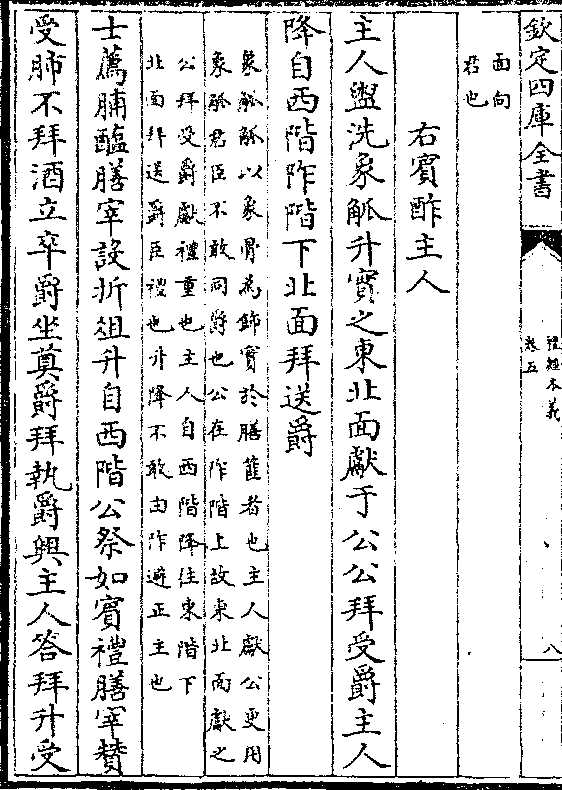 欽定四庫全書
禮經本義
卷五
八
面向
君也
右賓酢主人
主人盥洗象觚升實之東北面獻于公公拜受爵主人
降自西階阼階下北面拜送爵
象觚觚以象骨為飾實於膳篚者也主人獻公更用
象觚君臣不敢同爵也公在阼階上故東北面獻之
公拜受爵獻禮重也主人自西階降往東階下
北面拜送爵臣禮也升降不敢由阼避正主也
士薦脯醢膳宰設折俎升自西階公祭如賓禮膳宰贊
受肺不拜酒立卒爵坐奠爵拜執爵興主人答拜升受